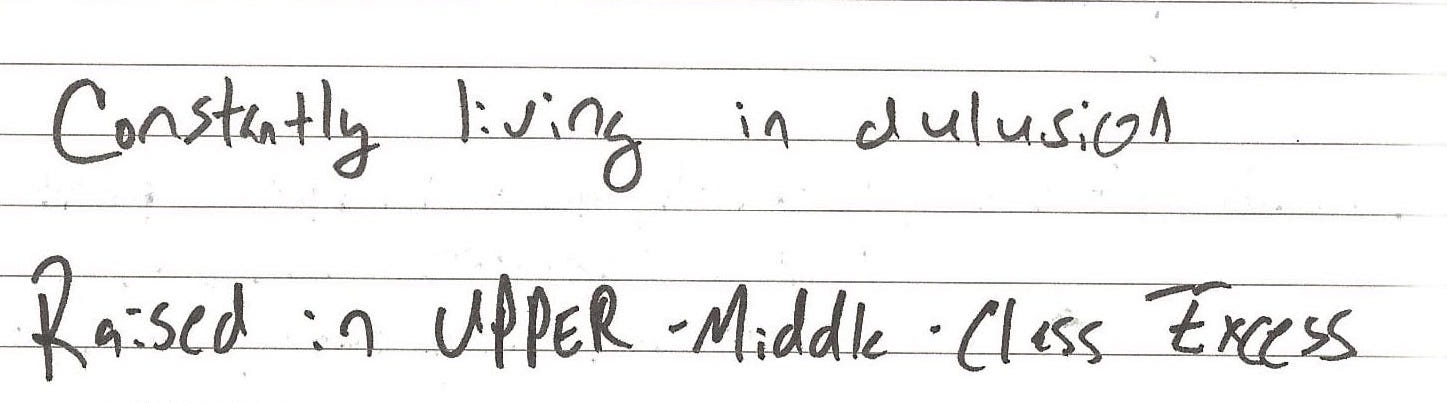 Constantly living in dulusion
Raised in UPPER-Middle-Class Excess